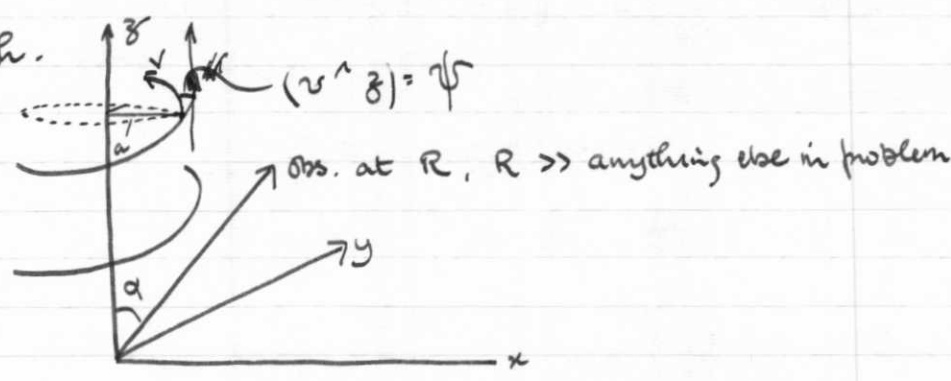 h. z
v (v ^ z) = ψ
a
obs. at R, R >> anything else in problem
α y
x